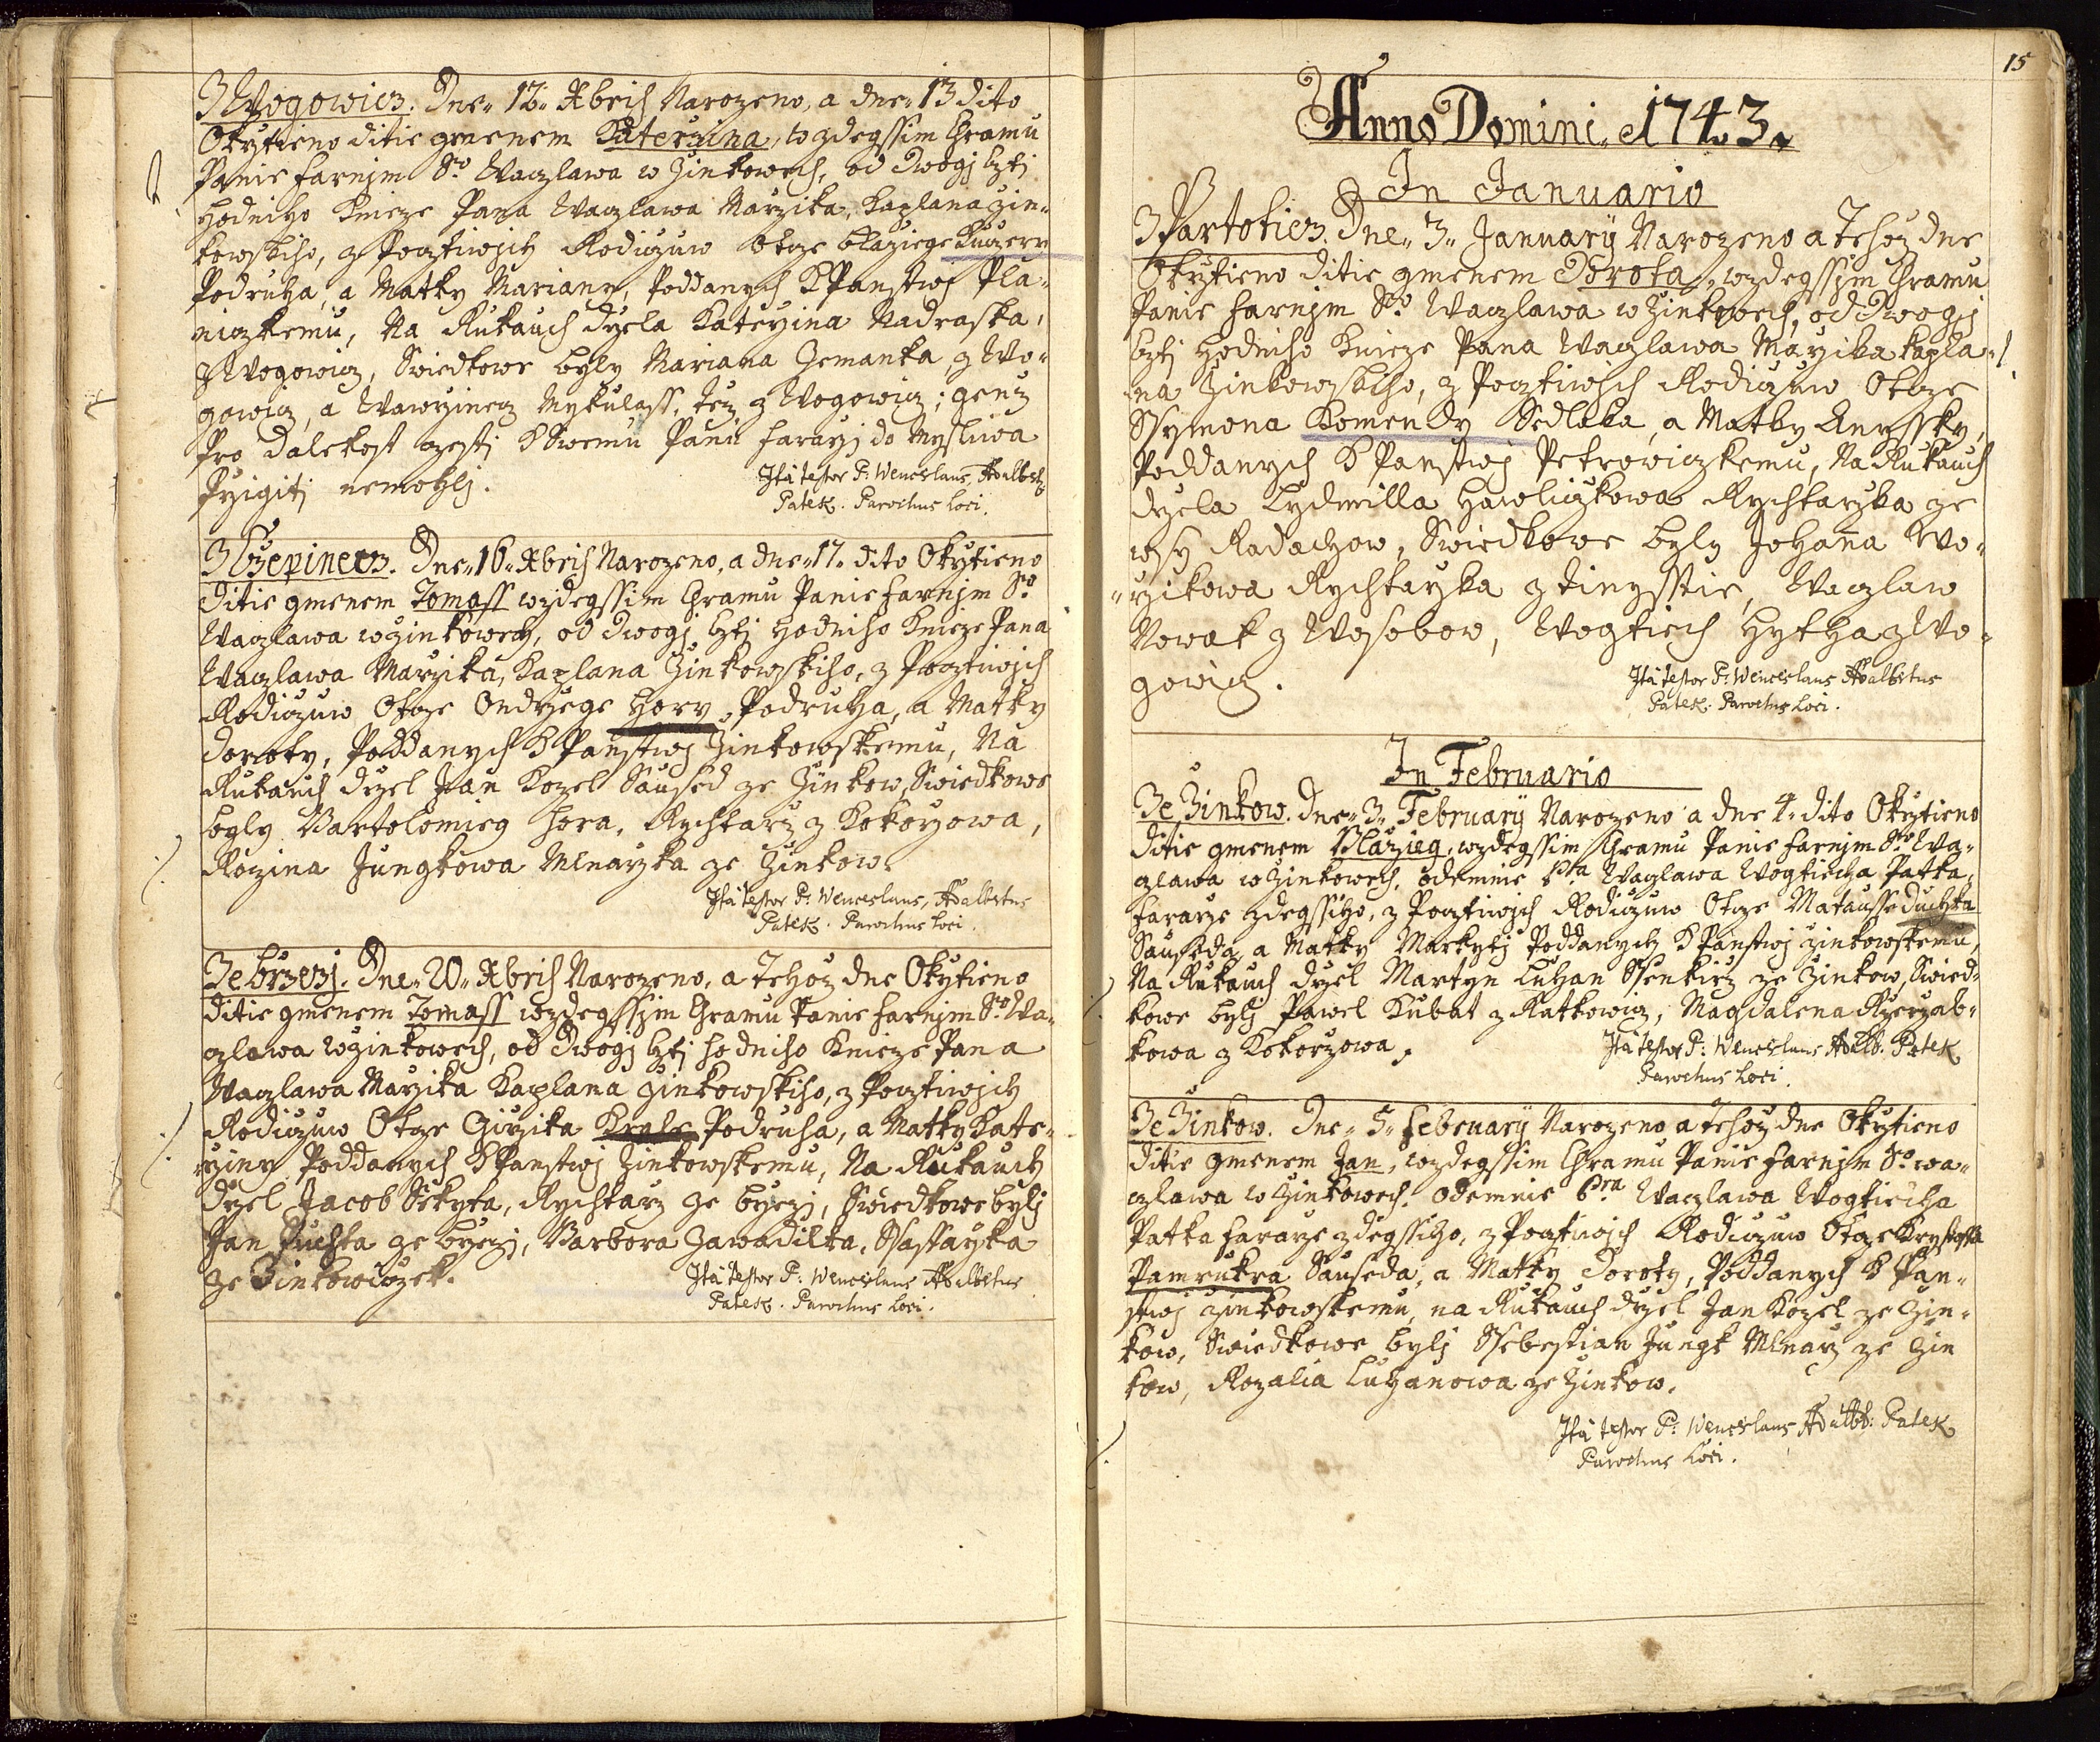 Z Wogowicz. Dne 12. Xbris Narozeno, a dne 13 dito
Okrztieno ditie gmenem Katerzina, w zdegssim Chramu
Panie farnjm So. Waczlawa w Zinkowech, od Dwogj Czti
hodniho Knieze Pana Waczlawa Marzika, Kaplana Zin-
kowskiho, z Pocztiwych Rodiczuw Otcze Blaziege Kuczery
Podruha, a Matky Mariany, Poddanych k Panstwj Pla-
niczkemu, Na Rukauch drzela Katerzina Nadraska,
z Wogowicz, Swiedkowe byly Mariana Zemanka, z Wo-
gowicz, a Wawrzinecz Mykulass, tez z Wogowicz; genz
Pro dalekost czesty k Swemu Panu Fararzj do Mysliwa
Przigiti nemohlj.
Ita testor P: Wenceslaus Adalbertg
Patek. Parochus Loci.
Z Czepinecz. Dne 16. Xbris Narozeno, a dne 17. dito Okrztieno
ditie gmenem Tomass w zdegssim Chramu Panie farnjm So.
Waczlawa w Zinkowech, od Dwogj Cztj hodniho Knieze Pana
Waczlawa Marzika, Kaplana Zinkowskiho, z Pocztiwjch
Rodiczuw Otcze Ondrzege Hory Podruha, a Matky
Doroty, Poddanych k Panstwj Zinkowskemu, Na
Rukauch drzel Jan Kozel Saused ze Zinkow, Swiedkowe
byly Bartolomieg Hora, Rychtarz z Kokorzowa,
Rozina Jungkowa Mlnarzka ze Zinkow.
Ita testor P: Wenceslaus, Adalbertus
Patek. Parochus Loci.
Ze Brzezj. Dne 20. Xbris Narozeno, a Tehoz dne Okrztieno
ditie gmenem Tomass w zdegssjm Chramu Panie farnjm So. Wa-
czlawa w Zinkowech, od Dwogj Cztj hodniho Knieze Pana
Waczlawa Marzika Kaplana Zinkowskiho, z Pocztiwjch
Rodiczuw Otcze Girzika Krale Podruha, a Matky Kate-
rziny Poddanych k Panstwj Zinkowskemu, Na Rukauch
drzel Jacob Sekyta, Rychtarz ze Brzezj, Swiedkowe bylj
Jan Puchta ze Brzezj, Barbora Zawadilka, Ssaffarzka
ze Zinkowiczek.
Ita testor P: Wenceslaus Adalbertus
Patek. Parochus Loci.
15
Anno Domini 1743.
In Januario
Z Partoticz. Dne 3. January Narozeno a Tehoz dne
Okrztieno ditie gmenem Dorota, w zdegssjm Chramu
Panie farnjm So. Waczlawa w Zinkowech, od Dwogj
Cztj hodniho Knieze Pana Waczlawa Marzika Kapla-
na Zinkowskiho, z Pocztiwjch Rodiczuw Otcze
Ssymona Komendy Sedlaka, a Matky Anyssky,
Poddanych k Panstwj Petrowiczkemu, Na Rukauch
drzela Lydmilla Hawliczkowa Rychtarzka ze
wsy Radachow, Swiedkowe byly Johana Wo-
rzikowa Rychtarzka z Tinysstie, Waczlaw
Nowak z Wosobow, Wogtiech Hytha z Wo-
gowicz.
Ita testor P: Wenceslaus Adalbertus
Patek. Parochus Loci.
In Februario
Ze Zinkow. Dne 3. February Narozeno a dne 4. dito Okrztieno
ditie gmenem Blazieg, w zdegssim Chramu Panie farnjm So. Wa-
czlawa w Zinkowech, odemnie Pra Waczlawa Wogtiecha Patka,
Fararze zdegssiho, z Pocztiwjch Rodiczuw Otcze Matausse Duchka
Sauseda, a Matky Markytj Poddanych k Panstwj Zinkowskemu,
Na Rukauch drzel Martin Luhan Ssenkirz ze Zinkow, Swied-
kowe bylj Pawel Kubat z Ratkowicz, Magdalena Rzerzab-
kowa z Kokorzowa.
Ita testor P: Wenceslaus Adalb: Patek
Parochus Loci.
Ze Zinkow. Dne 5. February Narozeno a Tehoz dne Okrztieno
ditie gmenem Jan, w zdegssim Chramu Panie farnjm So. Wa-
czlawa w Zinkowech, odemnie Pra Waczlawa Wogtiecha
Patka Fararze zdegssiho, z Pocztiwjch Rodiczuw Otcze Krystoffa
Pamrukra Sauseda, a Matky Doroty, Poddanych k Pan-
stwj Zinkowskemu, na Rukauch drzel Jan Kozel ze Zin-
kow, Swiedkowe bylj Ssebestian Jungk Mlnarz ze Zin
kow, Rozalia Luhanowa ze Zinkow.
Ita testor P: Wenceslaus Adalb: Patek
Parochus Loci.